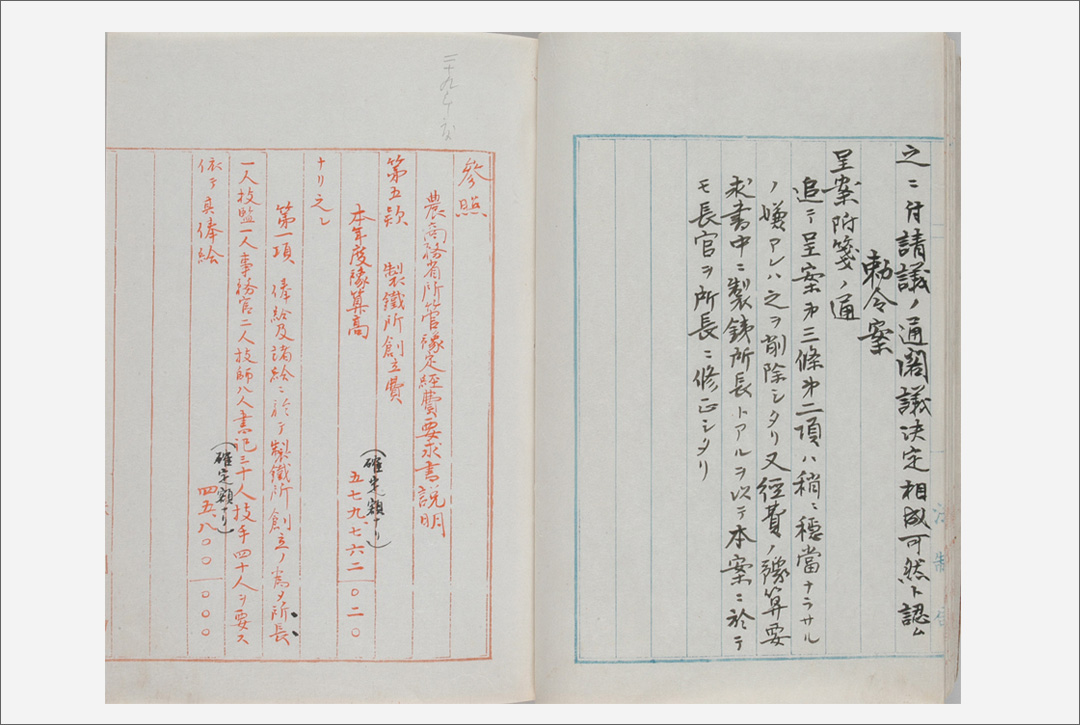 之ニ付請議ノ通閣議決定相成可然ト認ム
勅令案
呈案附箋ノ通
追テ呈案第三條第二項ハ稍々穩當ナラサル
ノ嫌アレハ之ヲ削除シタリ又経費ノ豫算要
求書中ニ製鉄所長トアルヲ以テ本案ニ於テ
モ長官ヲ所長ニ修正シタリ
法制局
二十九年度
參照
農商務省所管豫定経費要求書説明
第五款 製鐵所創立費
本年度豫算高 五七九、七六二、〇二〇
(確定額ナリ)
ナリ之レ
第一項 俸給及諸給ニ於テ製鐵所創立ノ為メ所長
一人技監一人事務官二人技師八人書記三十人技手四十人ヲ要ス
依テ其俸給 四五、八〇〇、〇〇〇
(確定額ナリ)